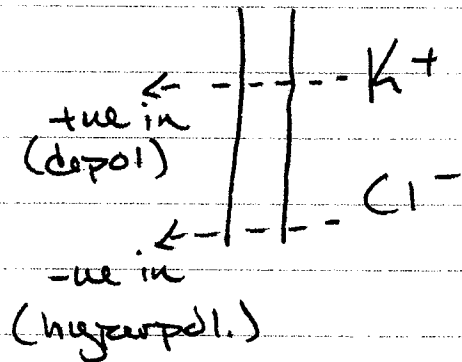 K+
+ve in
(depol)
Cl-
-ve in
(hyperpol.)